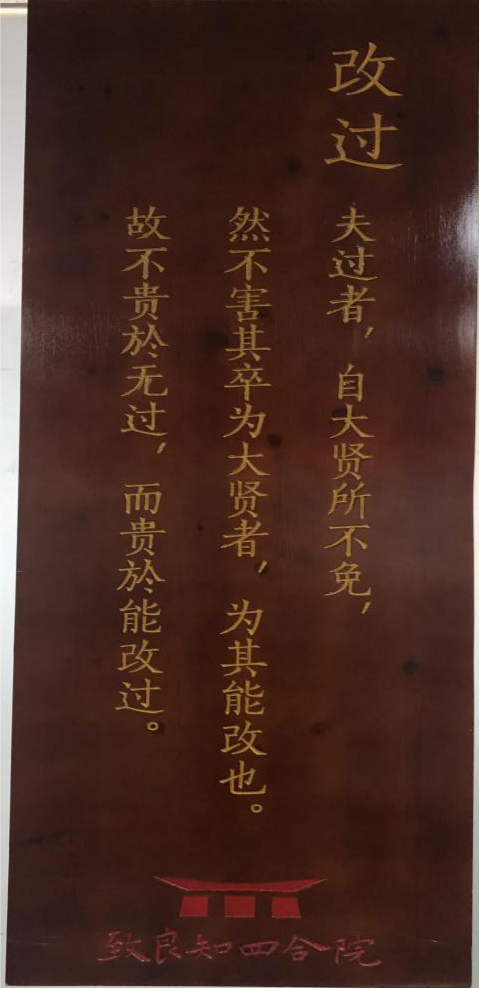 改过
夫过者，自大贤所不免，
然不害其卒为大贤者，为其能改也。
故不贵於无过，而贵於能改过。
致良知四合院